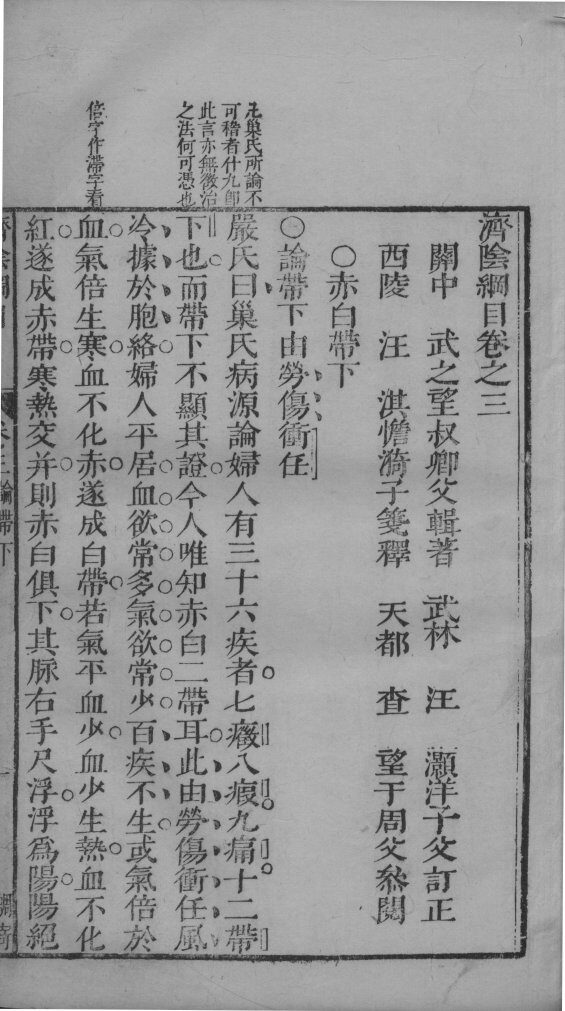 濟陰綱目卷之三
關中 武之望叔卿父輯著 武林 汪 灝洋子父訂正
西陵 汪 淇憺漪子箋釋 天都 查 望于周父叅閱
〇赤白帶下
論帶下由勞傷衝任
嚴氏曰巢氏病源論婦人有三十六疾者七癥八瘕九痛十二帶
下也而帶下不顯其證今人唯知赤白二帶耳此由勞傷衝任風
冷據於胞絡婦人平居血欲常多氣欲常少百疾不生或氣倍於
血氣倍生寒血不化赤遂成白帶若氣平血少血少生熱血不化
紅遂成赤帶寒熱交并則赤白俱下其脉右手尺浮浮爲陽陽絕
凡巢氏所論不
可稽者什九卽
此言亦無徵治
之法何可憑也
倍字作滯字看